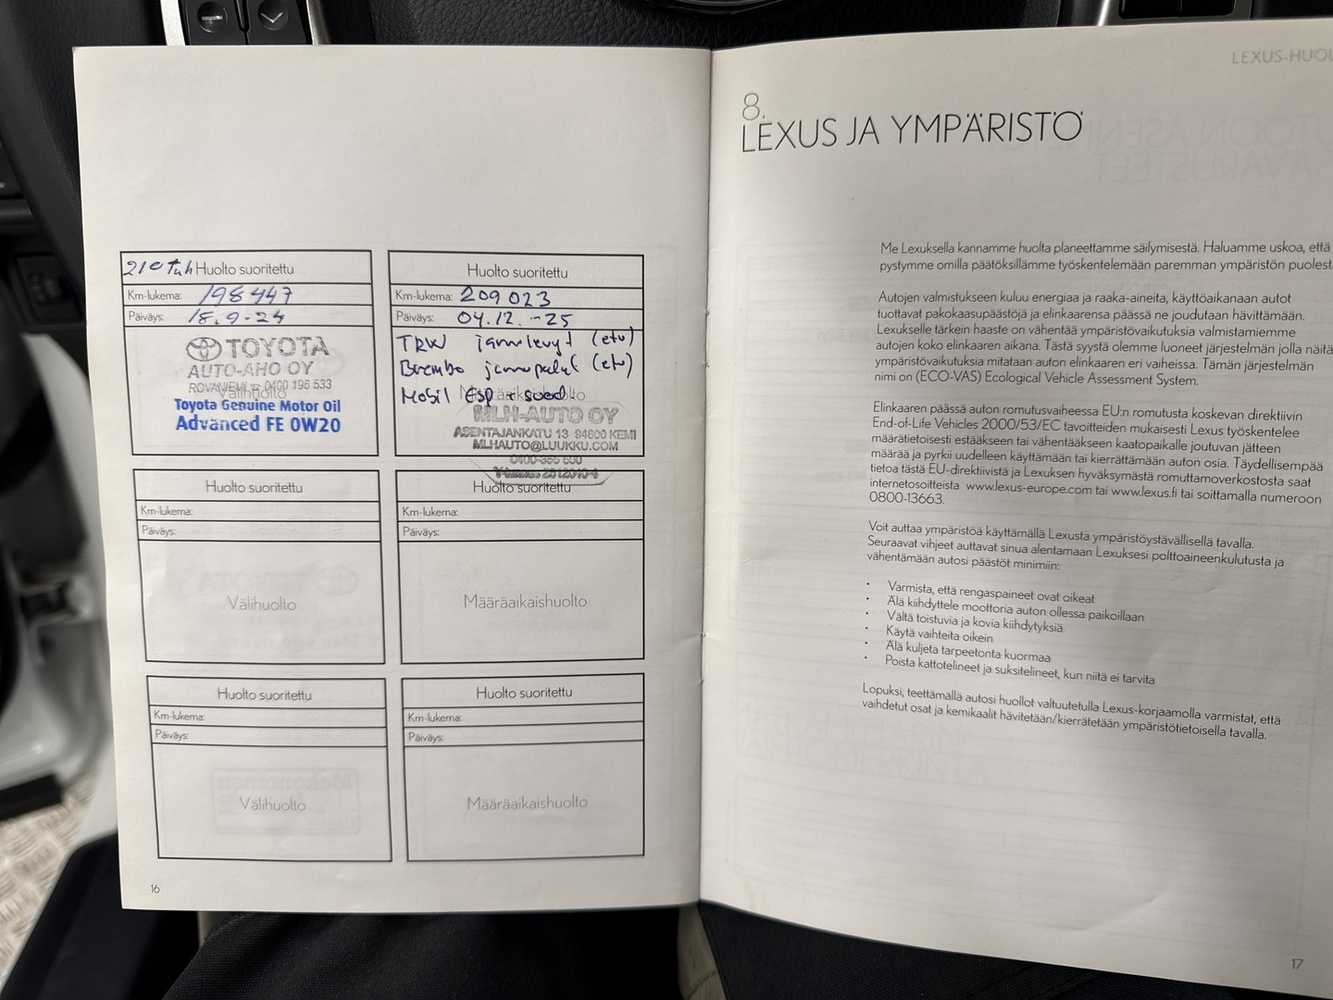 210 tuh Huolto suoritettu
Km-lukema: 198447
Päiväys: 18.9-24
TOYOTA
AUTO-AHO OY
ROVANIEMI p. 0400 196 533
Välihuolto
Toyota Genuine Motor Oil
Advanced FE 0W20
Huolto suoritettu
Km-lukema: 209023
Päiväys: 04.12.-25
TRW jarrulevyt (etu)
Brembo jarrupalat (etu)
Mobil Esp + suod.
Määräaikaishuolto
MLH-AUTO OY
ASENTAJANKATU 13 94600 KEMI
MLHAUTO@LUUKKU.COM
0400-355 500
Huolto suoritettu
Km-lukema:
Päiväys:
Välihuolto
Huolto suoritettu
Km-lukema:
Päiväys:
Määräaikaishuolto
Huolto suoritettu
Km-lukema:
Päiväys:
Välihuolto
Huolto suoritettu
Km-lukema:
Päiväys:
Määräaikaishuolto
16
LEXUS-HUOL
8.
LEXUS JA YMPÄRISTÖ
Me Lexuksella kannamme huolta planeettamme säilymisestä. Haluamme uskoa, että
pystymme omilla päätöksillämme työskentelemään paremman ympäristön puolest
Autojen valmistukseen kuluu energiaa ja raaka-aineita, käyttöaikanaan autot
tuottavat pakokaasupäästöjä ja elinkaarensa päässä ne joudutaan hävittämään.
Lexukselle tärkein haaste on vähentää ympäristövaikutuksia valmistamiemme
autojen koko elinkaaren aikana. Tästä syystä olemme luoneet järjestelmän jolla näitä
ympäristövaikutuksia mitataan auton elinkaaren eri vaiheissa. Tämän järjestelmän
nimi on (ECO-VAS) Ecological Vehicle Assessment System.
Elinkaaren päässä auton romutusvaiheessa EU:n romutusta koskevan direktiivin
End-of-Life Vehicles 2000/53/EC tavoitteiden mukaisesti Lexus työskentelee
määrätietoisesti estääkseen tai vähentääkseen kaatopaikalle joutuvan jätteen
määrää ja pyrkii uudelleen käyttämään tai kierrättämään auton osia. Täydellisempää
tietoa tästä EU-direktiivistä ja Lexuksen hyväksymästä romuttamoverkostosta saat
internetosoitteista www.lexus-europe.com tai www.lexus.fi tai soittamalla numeroon
0800-13663.
Voit auttaa ympäristöä käyttämällä Lexusta ympäristöystävällisellä tavalla.
Seuraavat vihjeet auttavat sinua alentamaan Lexuksesi polttoaineenkulutusta ja
vähentämään autosi päästöt minimiin:
• Varmista, että rengaspaineet ovat oikeat
• Älä kiihdyttele moottoria auton ollessa paikoillaan
• Vältä toistuvia ja kovia kiihdytyksiä
• Käytä vaihteita oikein
• Älä kuljeta tarpeetonta kuormaa
• Poista kattotelineet ja suksitelineet, kun niitä ei tarvita
Lopuksi, teettämällä autosi huollot valtuutetulla Lexus-korjaamolla varmistat, että
vaihdetut osat ja kemikaalit hävitetään/kierrätetään ympäristötietoisella tavalla.
17